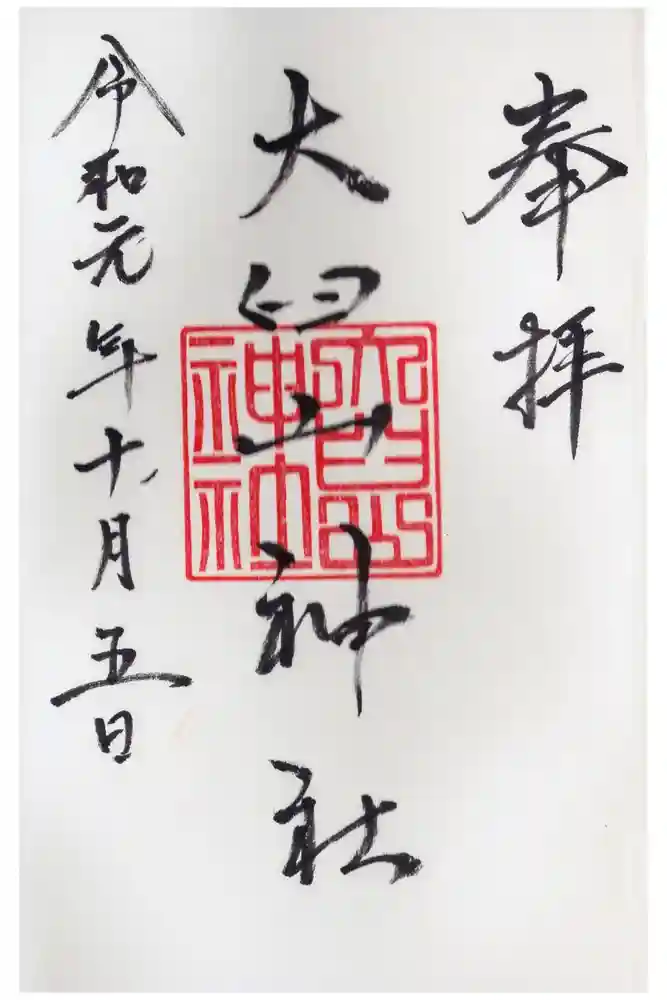 奉拝
大臼山神社
大臼山
神社
令和元年十月五日